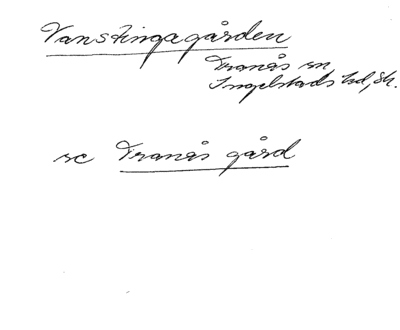 Vanstingagården
Tranås sn,
Ingelstads hd, Sk.
se Tranås gård